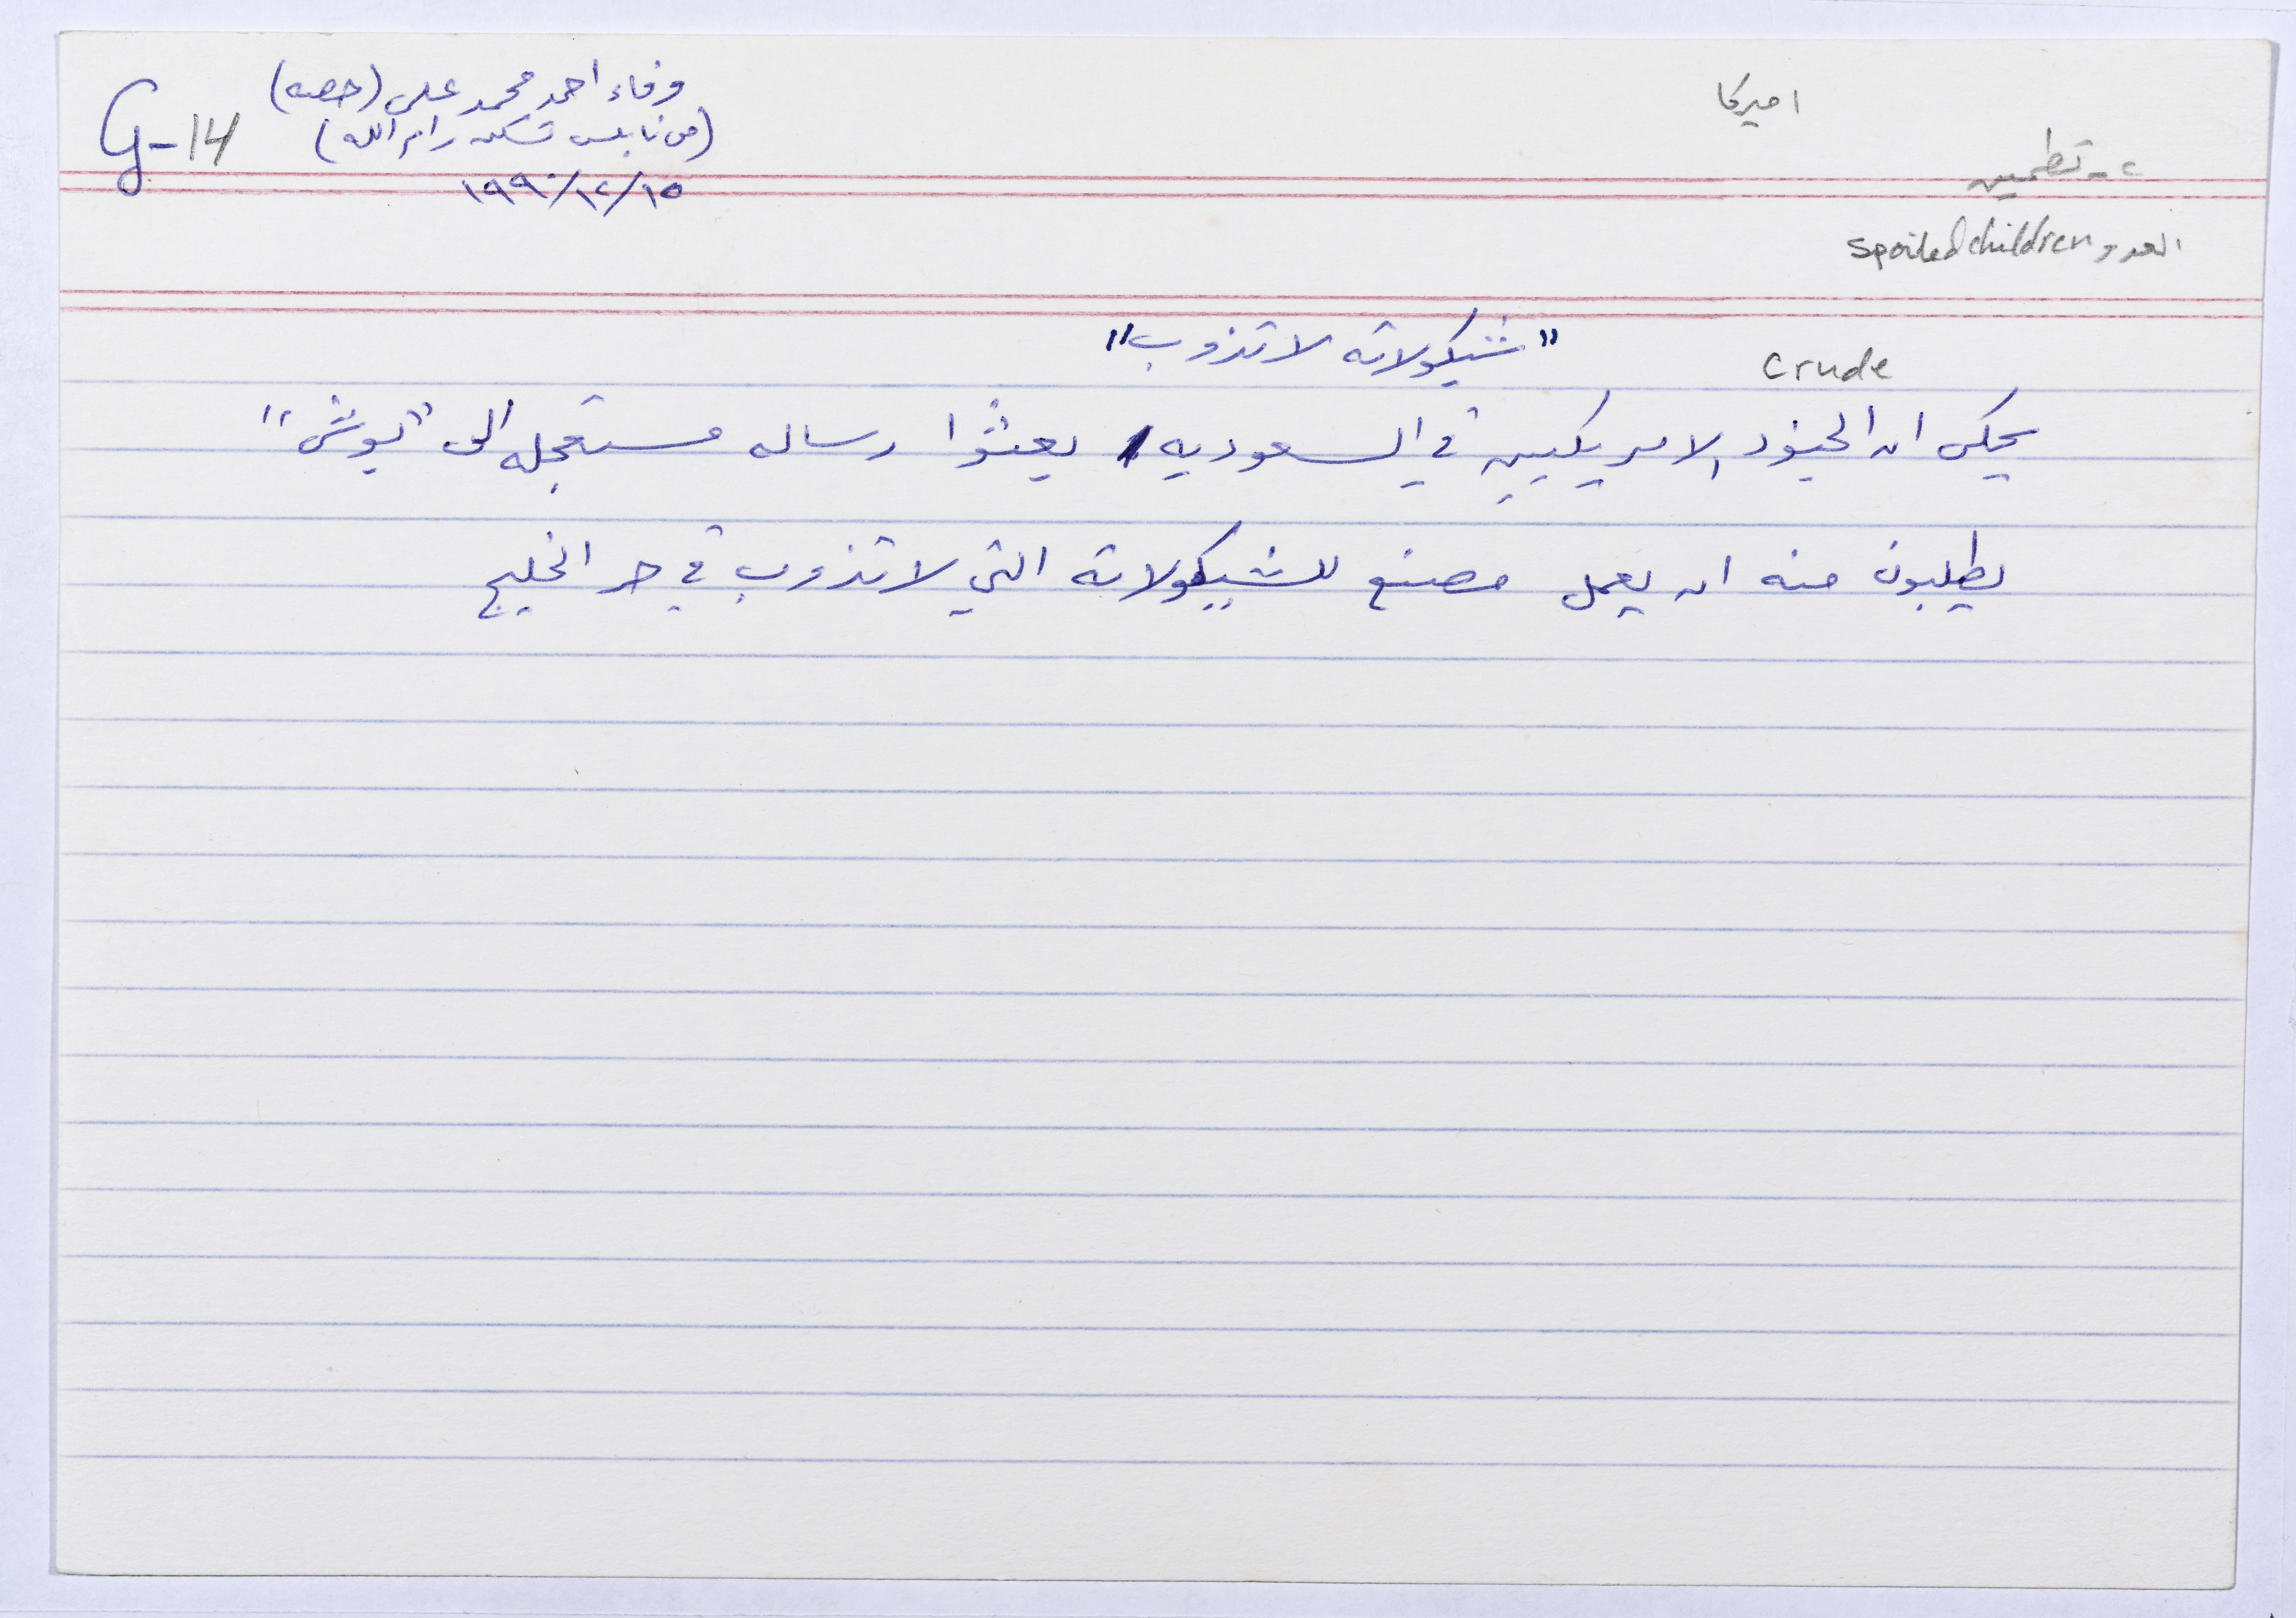 اميركا
٢ - تطمين
العدو spoiled children
وفاء احمد محمد علي (حصه)
(من نابلس تسكن رام الله)
G-14
١٩٩٠/١٢/١٥
"شيكولاته لا تذوب"
crude
يحكى ان الجنود الامريكيين في السعوديه بعثوا رساله مستعجله الى "بوش"
يطلبون منه ان يعمل مصنع للشيكولاته التي لا تذوب في حر الخليج